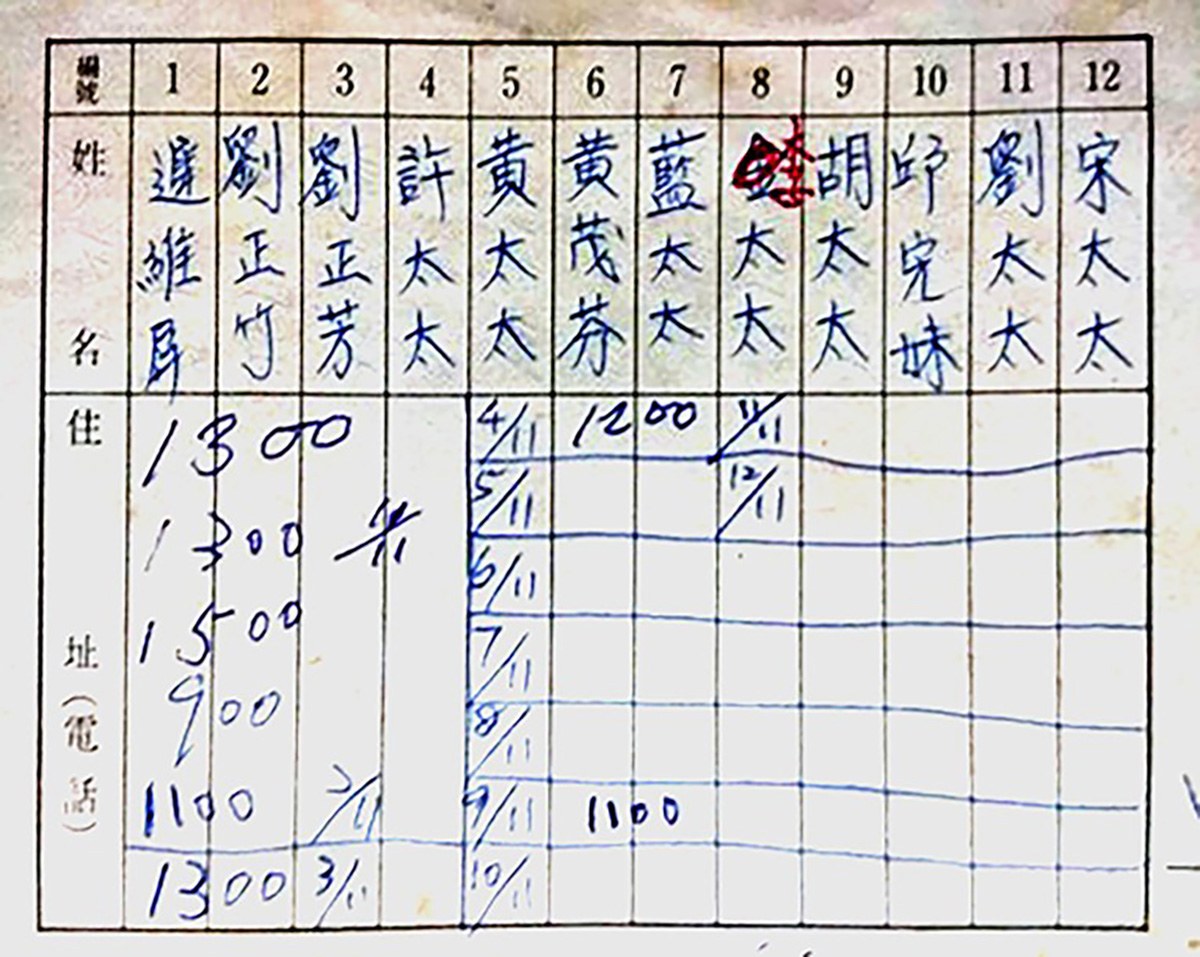 編號 1 2 3 4 5 6 7 8 9 10 11 12
姓名
維
劉正竹
劉正芳
許太太
黃太太
黃茂芬
藍太太
太太
胡太太
邱完妹
劉太太
宋太太
住址(電話)
1300
1300
1500
900
1100 2/11
1300 3/11
4/11 1200
5/11
6/11
7/11
8/11
9/11 1100
10/11
11/11
12/11